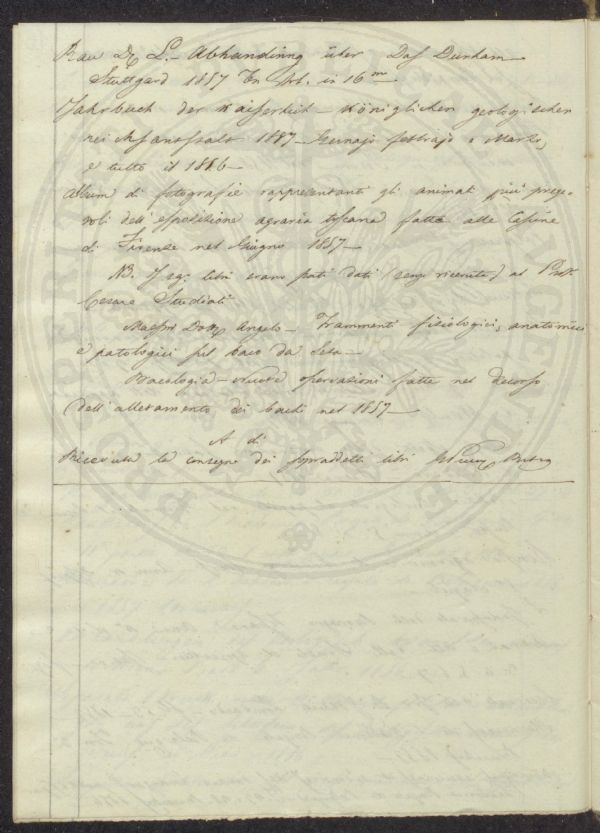 Rau Dr L. - Abhandinng über Das Dunham
Stuttgard 1857 Un Vol. in 16mo
Jahrbuch der Kaiserlich - Königlichen geologischen
reichsantstalt 1857 - Gennajo febbrajo e Marzo,
e tutto il 1856 -
Album di fotografie rappresentanti gli animali più prege-
voli dell'esposizione agraria toscana fatta alle Cascine
di Firenze nel Giugno 1857 -
NB. I seg: libri erano stati dati (senza ricevuta) al Prof.
Cesare Studiati
Maestri Dottr Angelo - Frammenti fisiologici, anatomici
e patologici sul baco da Seta -
Bacologia - nuove osservazioni fatte nel decorso
dell'allevamento dei bachi nel 1857 -
A di
Ricevuta la consegna dei sopraddetti libri